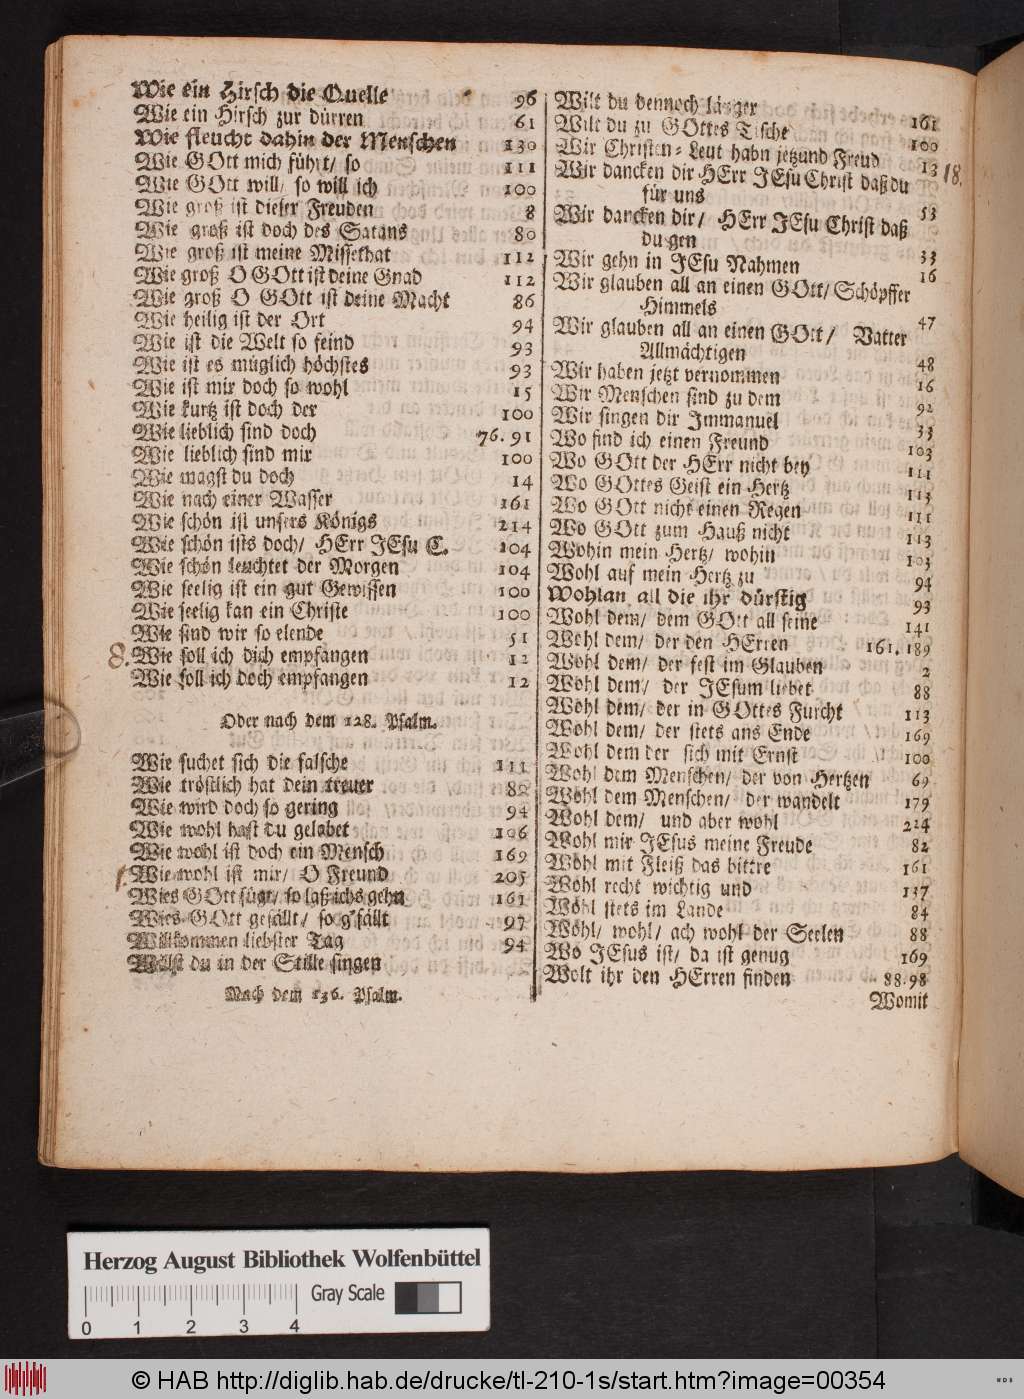 Wie ein Hirsch die Quelle 96
Wie ein Hirsch zur dürren 61
Wie fleucht dahin der Menschen 130
Wie GOtt mich führt/ so 111
Wie GOtt will/ so will ich 100
Wie groß ist dieser Freuden 8
Wie groß ist doch des Satans 80
Wie groß ist meine Missethat 112
Wie groß O GOtt ist deine Gnad 112
Wie groß O GOtt ist deine Macht 86
Wie heilig ist der Ort 94
Wie ist die Welt so feind 93
Wie ist es müglich höchstes 93
Wie ist mir doch so wohl 15
Wie kurtz ist doch der 100
Wie lieblich sind doch 76. 91
Wie lieblich sind mir 100
Wie magst du doch 14
Wie nach einer Wasser 161
Wie schön ist unsers Königs 214
Wie schön ists doch/ HErr JEsu C. 104
Wie schön leuchtet der Morgen 104
Wie seelig ist ein gut Gewissen 100
Wie seelig kan ein Christe 100
Wie sind wir so elende 51
8. Wie soll ich dich empfangen 12
Wie soll ich doch empfangen 12
Oder nach dem 128. Psalm.
Wie suchet sich die falsche 111
Wie tröstlich hat dein treuer 82
Wie wird doch so gering 94
Wie wohl hast du gelabet 106
Wie wohl ist doch ein Mensch 169
Wie wohl ist mir/ O Freund 205
Wies GOtt fügt/ so laß ichs gehn 161
Wies GOtt gefällt/ so g'fällt 97
Willkommen liebster Tag 94
Willst du in der Stille singen
Nach dem 136. Psalm.
Wilt du dennoch länger 161
Wilt du zu GOttes Tische 100
Wir Christen-Leut habn jetzund Freud 13 18.
Wir dancken dir HErr JEsu Christ daß du
für uns 53
Wir dancken dir/ HErr JEsu Christ daß
du gen 33
Wir gehn in JEsu Nahmen 16
Wir glauben all an einen GOtt/ Schöpffer
Himmels 47
Wir glauben all an einen GOtt/ Vatter
Allmächtigen 48
Wir haben jetzt vernommen 16
Wir Menschen sind zu dem 92
Wir singen dir Immanuel 33
Wo find ich einen Freund 103
Wo GOtt der HErr nicht bey 111
Wo GOttes Geist ein Hertz 113
Wo GOtt nicht einen Regen 111
Wo GOtt zum Hauß nicht 113
Wohin mein Hertz/ wohin 103
Wohl auf mein Hertz zu 94
Wohlan all die ihr dürstig 93
Wohl dem/ dem GOtt all seine 141
Wohl dem/ der den HErren 161. 189
Wohl dem/ der fest im Glauben 2
Wohl dem/ der JEsum liebet 88
Wohl dem/ der in GOttes Furcht 113
Wohl dem/ der stets ans Ende 169
Wohl dem der sich mit Ernst 100
Wohl dem Menschen/ der von Hertzen 69
Wohl dem Menschen/ der wandelt 179
Wohl dem/ und aber wohl 214
Wohl mir JEsus meine Freude 82
Wohl mit Fleiß das bittre 161
Wohl recht wichtig und 137
Wohl stets im Lande 84
Wohl/ wohl/ ach wohl der Seelen 88
Wo JEsus ist/ da ist genug 169
Wolt ihr den HErren finden 88. 98
Womit
Herzog August Bibliothek Wolfenbüttel
Gray Scale
0 1 2 3 4
© HAB http://diglib.hab.de/drucke/tl-210-1s/start.htm?image=00354